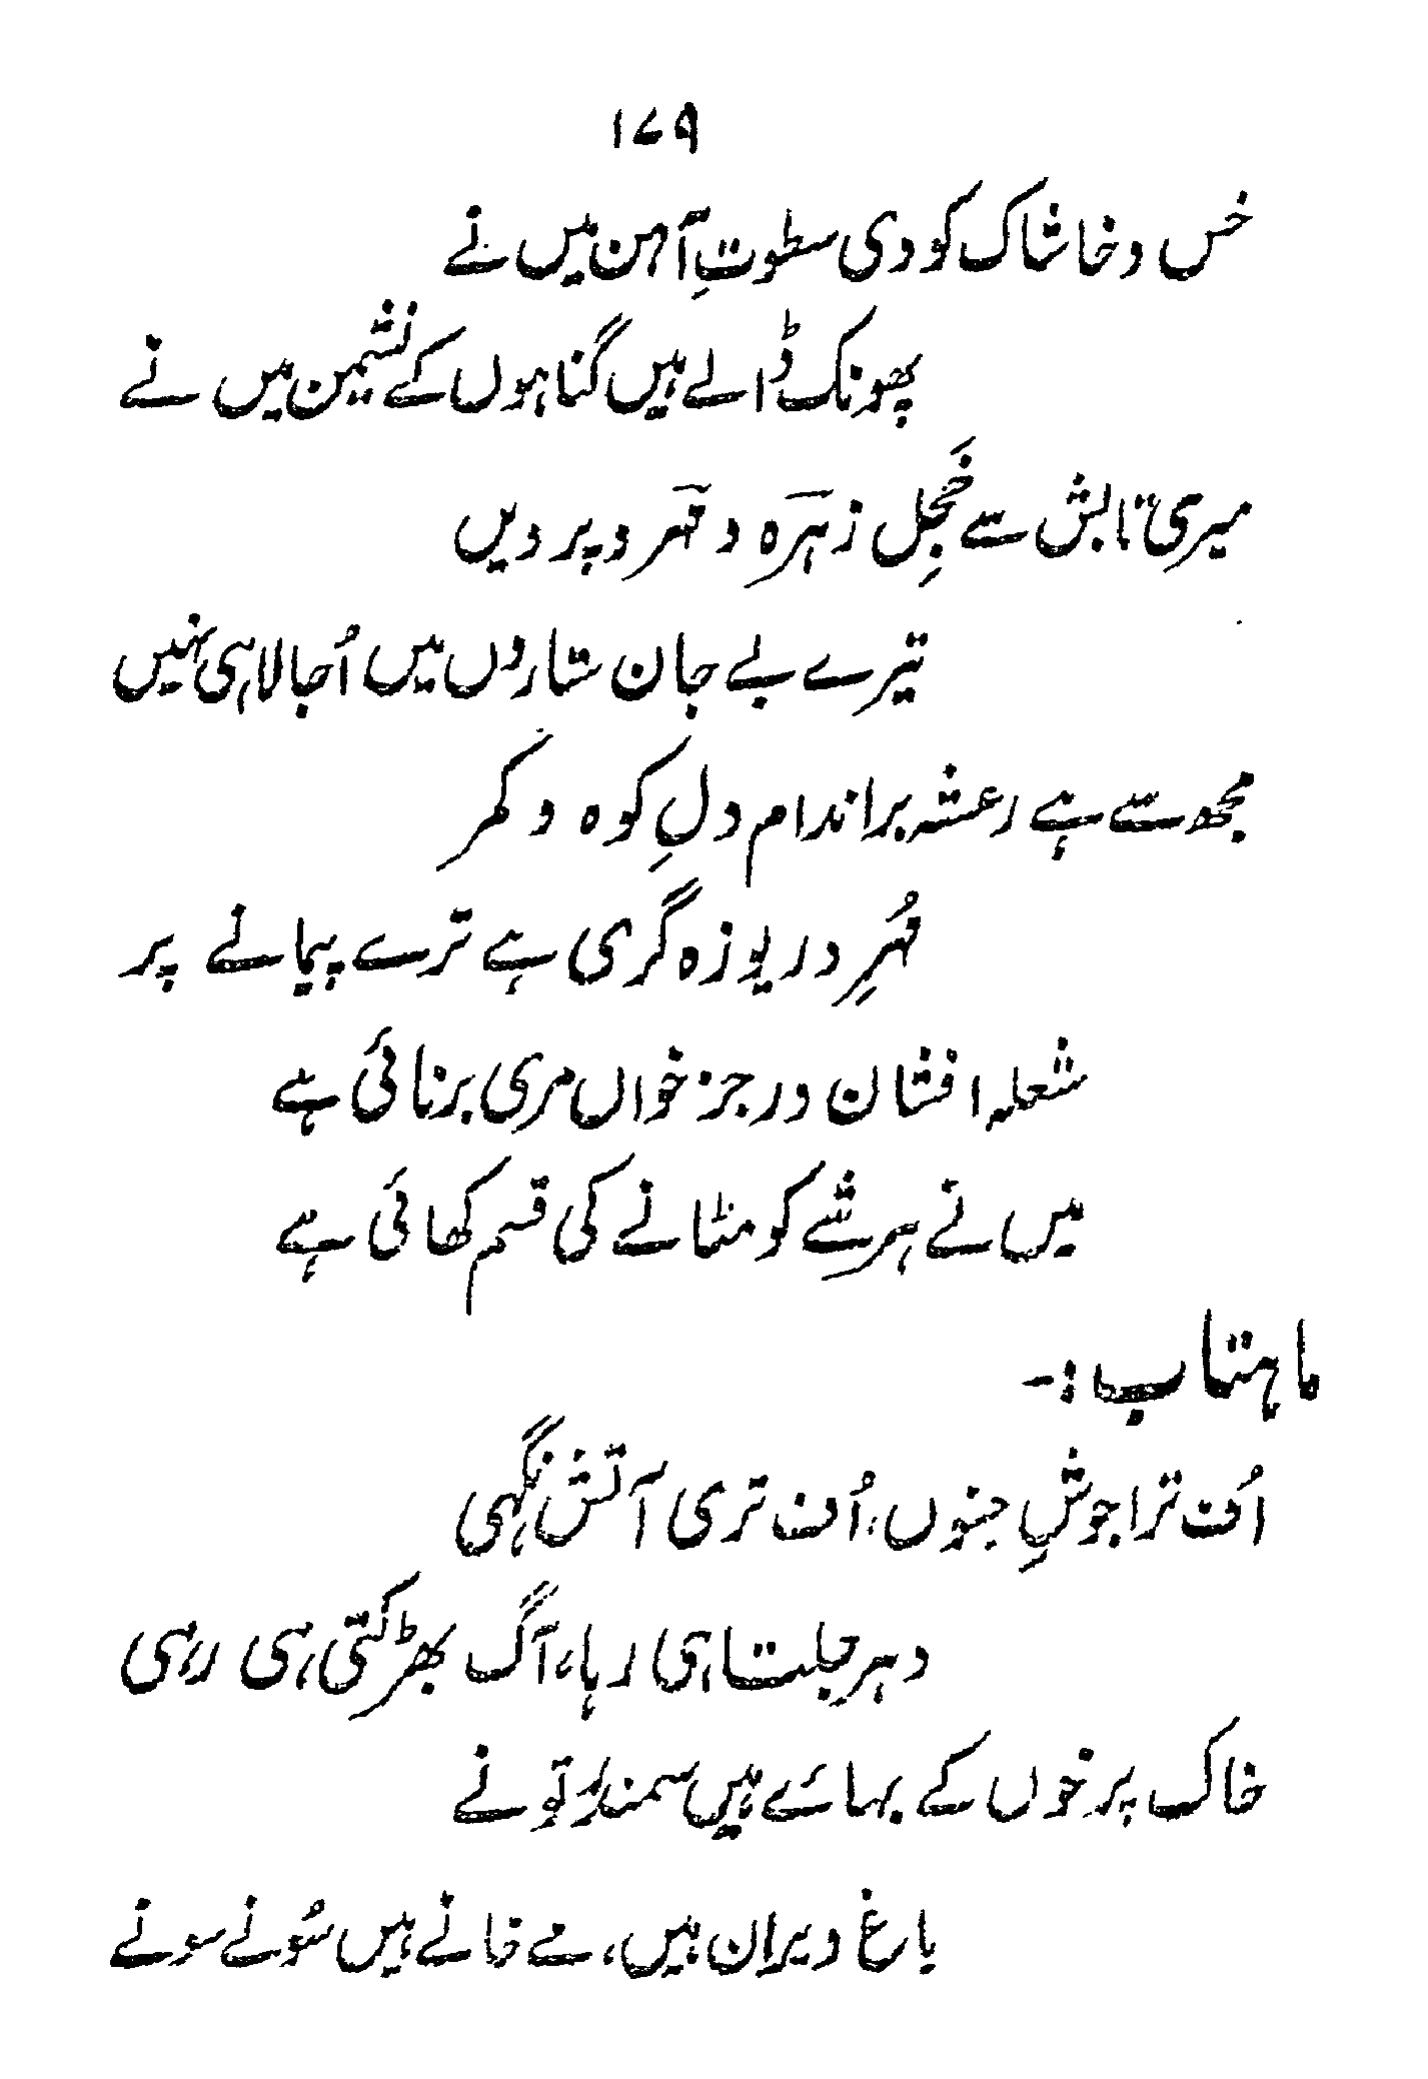 ۱۷۹
خس و خاشاک کو دی سطوتِ آہن میں نے
پھونک ڈالے ہیں گناہوں کے نشیمن میں نے
میری تابش سے خَجِل زہرہ و قمر و پرویں
تیرے بے جان ستاروں میں اُجالا ہی نہیں
مجھ سے ہے رعشہ بر اندام دلِ کوہ و کمر
مُہرِ دریوزہ گری ہے ترے پیمانے پر
شعلہ افشان و رجز خواں مری برنائی ہے
میں نے ہر شے کو مٹانے کی قسم کھائی ہے
ماہتاب :-
اُف ترا جوشِ جنوں، اُف تری آتش نگہی
دہر جلتا ہی رہا، آگ بھڑکتی ہی رہی
خاک پر خوں کے بہائے ہیں سمندر تو نے
باغ ویران ہیں، مے خانے ہیں سُونے سونے